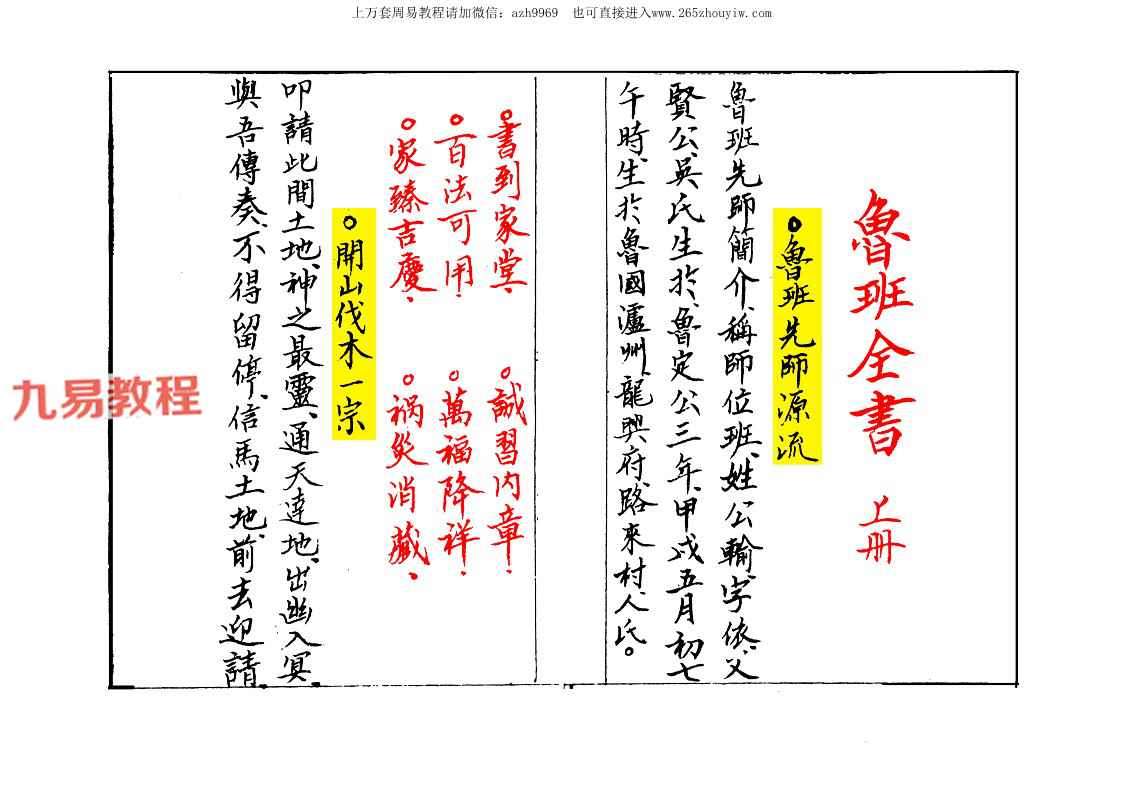 上万套周易教程请加微信：azh9969　也可直接进入www.265zhouyiw.com
魯班全書　上册
。魯班先師源流
魯班先師簡介、稱師位班、姓公輸、字依、父
賢公、吳氏生於、魯定公三年、甲戌五月初七
午時、生於魯國瀘州、龍興府、路來村、人氏。
。書到家堂．　。誠習內章．
。百法可用．　。萬福降祥．
。家臻吉慶．　。禍災消藏．
。開山伐木一宗
叩請此間土地、神之最靈、通天達地、出幽入冥、
與吾傳奏、不得留停、信馬土地、前去迎請、
九易教程